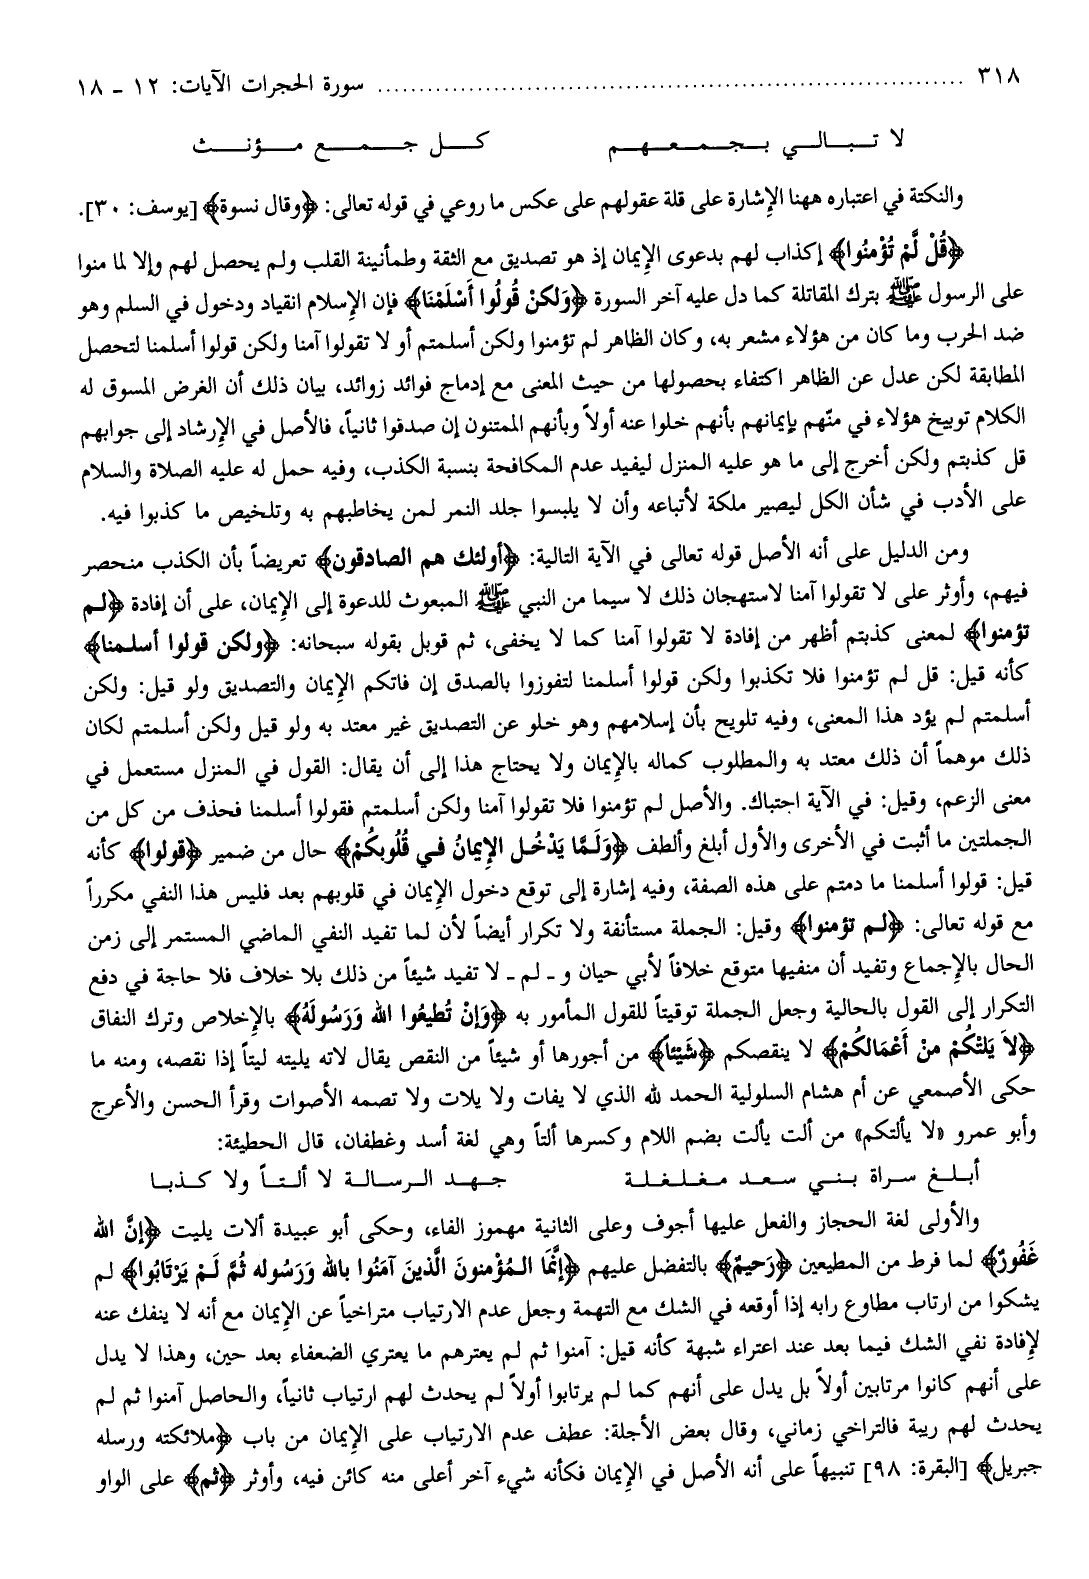 ٣١٨ ........ سورة الحجرات الآيات: ١٢ ـ ١٨
لا تـبـالـي بـجـمـعـهـم كـل جـمـع مـؤنـث
والنكتة في اعتباره ههنا الإشارة على قلة عقولهم على عكس ما روعي في قوله تعالى: ﴿وقال نسوة﴾ [يوسف: ٣٠].
﴿قُلْ لَّمْ تُؤْمِنُوا﴾ إكذاب لهم بدعوى الإيمان إذ هو تصديق مع الثقة وطمأنينة القلب ولم يحصل لهم وإلا لما منوا
على الرسول ﷺ بترك المقاتلة كما دل عليه آخر السورة ﴿وَلكنْ قُولُوا أَسْلَمْنَا﴾ فإن الإسلام انقياد ودخول في السلم وهو
ضد الحرب وما كان من هؤلاء مشعر به، وكان الظاهر لم تؤمنوا ولكن أسلمتم أو لا تقولوا آمنا ولكن قولوا أسلمنا لتحصل
المطابقة لكن عدل عن الظاهر اكتفاء بحصولها من حيث المعنى مع إدماج فوائد زوائد، بيان ذلك أن الغرض المسوق له
الكلام توبيخ هؤلاء في منّهم بإيمانهم بأنهم خلوا عنه أولاً وبأنهم الممتنون إن صدقوا ثانياً، فالأصل في الإرشاد إلى جوابهم
قل كذبتم ولكن أخرج إلى ما هو عليه المنزل ليفيد عدم المكافحة بنسبة الكذب، وفيه حمل له عليه الصلاة والسلام
على الأدب في شأن الكل ليصير ملكة لأتباعه وأن لا يلبسوا جلد النمر لمن يخاطبهم به وتلخيص ما كذبوا فيه.
ومن الدليل على أنه الأصل قوله تعالى في الآية التالية: ﴿أولئك هم الصادقون﴾ تعريضاً بأن الكذب منحصر
فيهم، وأوثر على لا تقولوا آمنا لاستهجان ذلك لا سيما من النبي ﷺ المبعوث للدعوة إلى الإيمان، على أن إفادة ﴿لم
تؤمنوا﴾ لمعنى كذبتم أظهر من إفادة لا تقولوا آمنا كما لا يخفى، ثم قوبل بقوله سبحانه: ﴿ولكن قولوا أسلمنا﴾
كأنه قيل: قل لم تؤمنوا فلا تكذبوا ولكن قولوا أسلمنا لتفوزوا بالصدق إن فاتكم الإيمان والتصديق ولو قيل: ولكن
أسلمتم لم يؤد هذا المعنى، وفيه تلويح بأن إسلامهم وهو خلو عن التصديق غير معتد به ولو قيل ولكن أسلمتم لكان
ذلك موهماً أن ذلك معتد به والمطلوب كماله بالإيمان ولا يحتاج هذا إلى أن يقال: القول في المنزل مستعمل في
معنى الزعم، وقيل: في الآية احتباك. والأصل لم تؤمنوا فلا تقولوا آمنا ولكن أسلمتم فقولوا أسلمنا فحذف من كل من
الجملتين ما أثبت في الأخرى والأول أبلغ وألطف ﴿وَلَمَّا يَدْخُلِ الإِيمَانُ في قُلُوبكُمْ﴾ حال من ضمير ﴿قولوا﴾ كأنه
قيل: قولوا أسلمنا ما دمتم على هذه الصفة، وفيه إشارة إلى توقع دخول الإيمان في قلوبهم بعد فليس هذا النفي مكرراً
مع قوله تعالى: ﴿لم تؤمنوا﴾ وقيل: الجملة مستأنفة ولا تكرار أيضاً لأن لما تفيد النفي الماضي المستمر إلى زمن
الحال بالإجماع وتفيد أن منفيها متوقع خلافاً لأبي حيان و ـ لم ـ لا تفيد شيئاً من ذلك بلا خلاف فلا حاجة في دفع
التكرار إلى القول بالحالية وجعل الجملة توقيتاً للقول المأمور به ﴿وَإنْ تُطيعُوا الله وَرَسُولَهُ﴾ بالإخلاص وترك النفاق
﴿لاَ يَلتْكُمْ منْ أَعْمَالكُمْ﴾ لا ينقصكم ﴿شَيْئاً﴾ من أجورها أو شيئاً من النقص يقال لاته يليته ليتاً إذا نقصه، ومنه ما
حكى الأصمعي عن أم هشام السلولية الحمد لله الذي لا يفات ولا يلات ولا تصمه الأصوات وقرأ الحسن والأعرج
وأبو عمرو «لا يألتكم» من ألت يألت بضم اللام وكسرها ألتاً وهي لغة أسد وغطفان، قال الحطيئة:
أبـلـغ سـراة بـنـي سـعـد مـغـلـغـلـة جـهـد الـرسـالـة لا ألـتـاً ولا كـذبـا
والأولى لغة الحجاز والفعل عليها أجوف وعلى الثانية مهموز الفاء، وحكى أبو عبيدة ألات يليت ﴿إنَّ الله
غَفُورٌ﴾ لما فرط من المطيعين ﴿رَحيمٌ﴾ بالتفضل عليهم ﴿إنَّمَا المُؤْمنونَ الَّذينَ آمَنُوا بالله وَرَسُوله ثُمَّ لَمْ يَرْتَابُوا﴾ لم
يشكوا من ارتاب مطاوع رابه إذا أوقعه في الشك مع التهمة وجعل عدم الارتياب متراخياً عن الإيمان مع أنه لا ينفك عنه
لإفادة نفي الشك فيما بعد عند اعتراء شبهة كأنه قيل: آمنوا ثم لم يعترهم ما يعتري الضعفاء بعد حين، وهذا لا يدل
على أنهم كانوا مرتابين أولاً بل يدل على أنهم كما لم يرتابوا أولاً لم يحدث لهم ارتياب ثانياً، والحاصل آمنوا ثم لم
يحدث لهم ريبة فالتراخي زماني، وقال بعض الأجلة: عطف عدم الارتياب على الإيمان من باب ﴿ملائكته ورسله
جبريل﴾ [البقرة: ٩٨] تنبيهاً على أنه الأصل في الإيمان فكأنه شيء آخر أعلى منه كائن فيه، وأوثر ﴿ثم﴾ على الواو